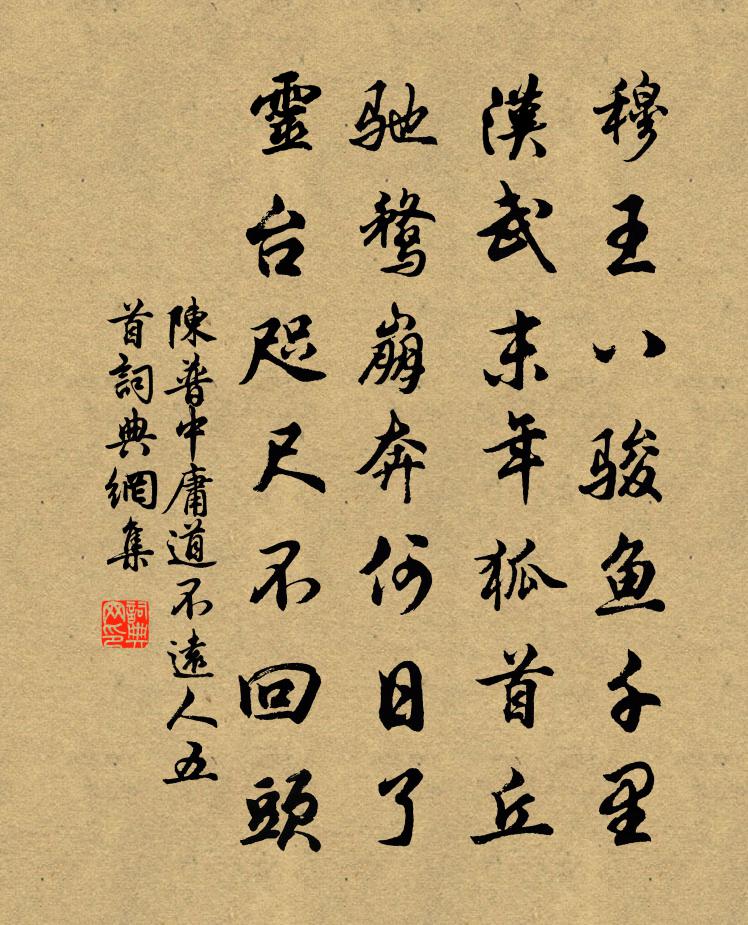 穆王八骏鱼千里
漢武末年狐首丘
馳鶩崩奔何日了
靈台咫尺不回頭
陳普中庸道不遠人五
首詞典網集
詞典网印